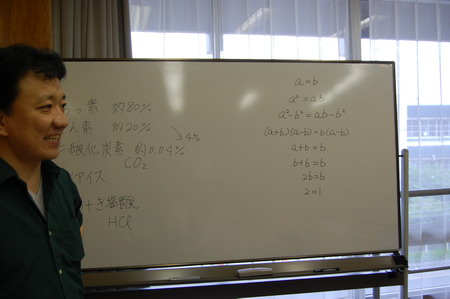 っ素 約80%
ん素 約20%
二酸化炭素 約0.04%
4%
CO₂
アイス
き塩酸
HCl
a=b
a²=ab
a²-b²=ab-b²
(a+b)(a-b)=b(a-b)
a+b=b
b+b=b
2b=b
2=1